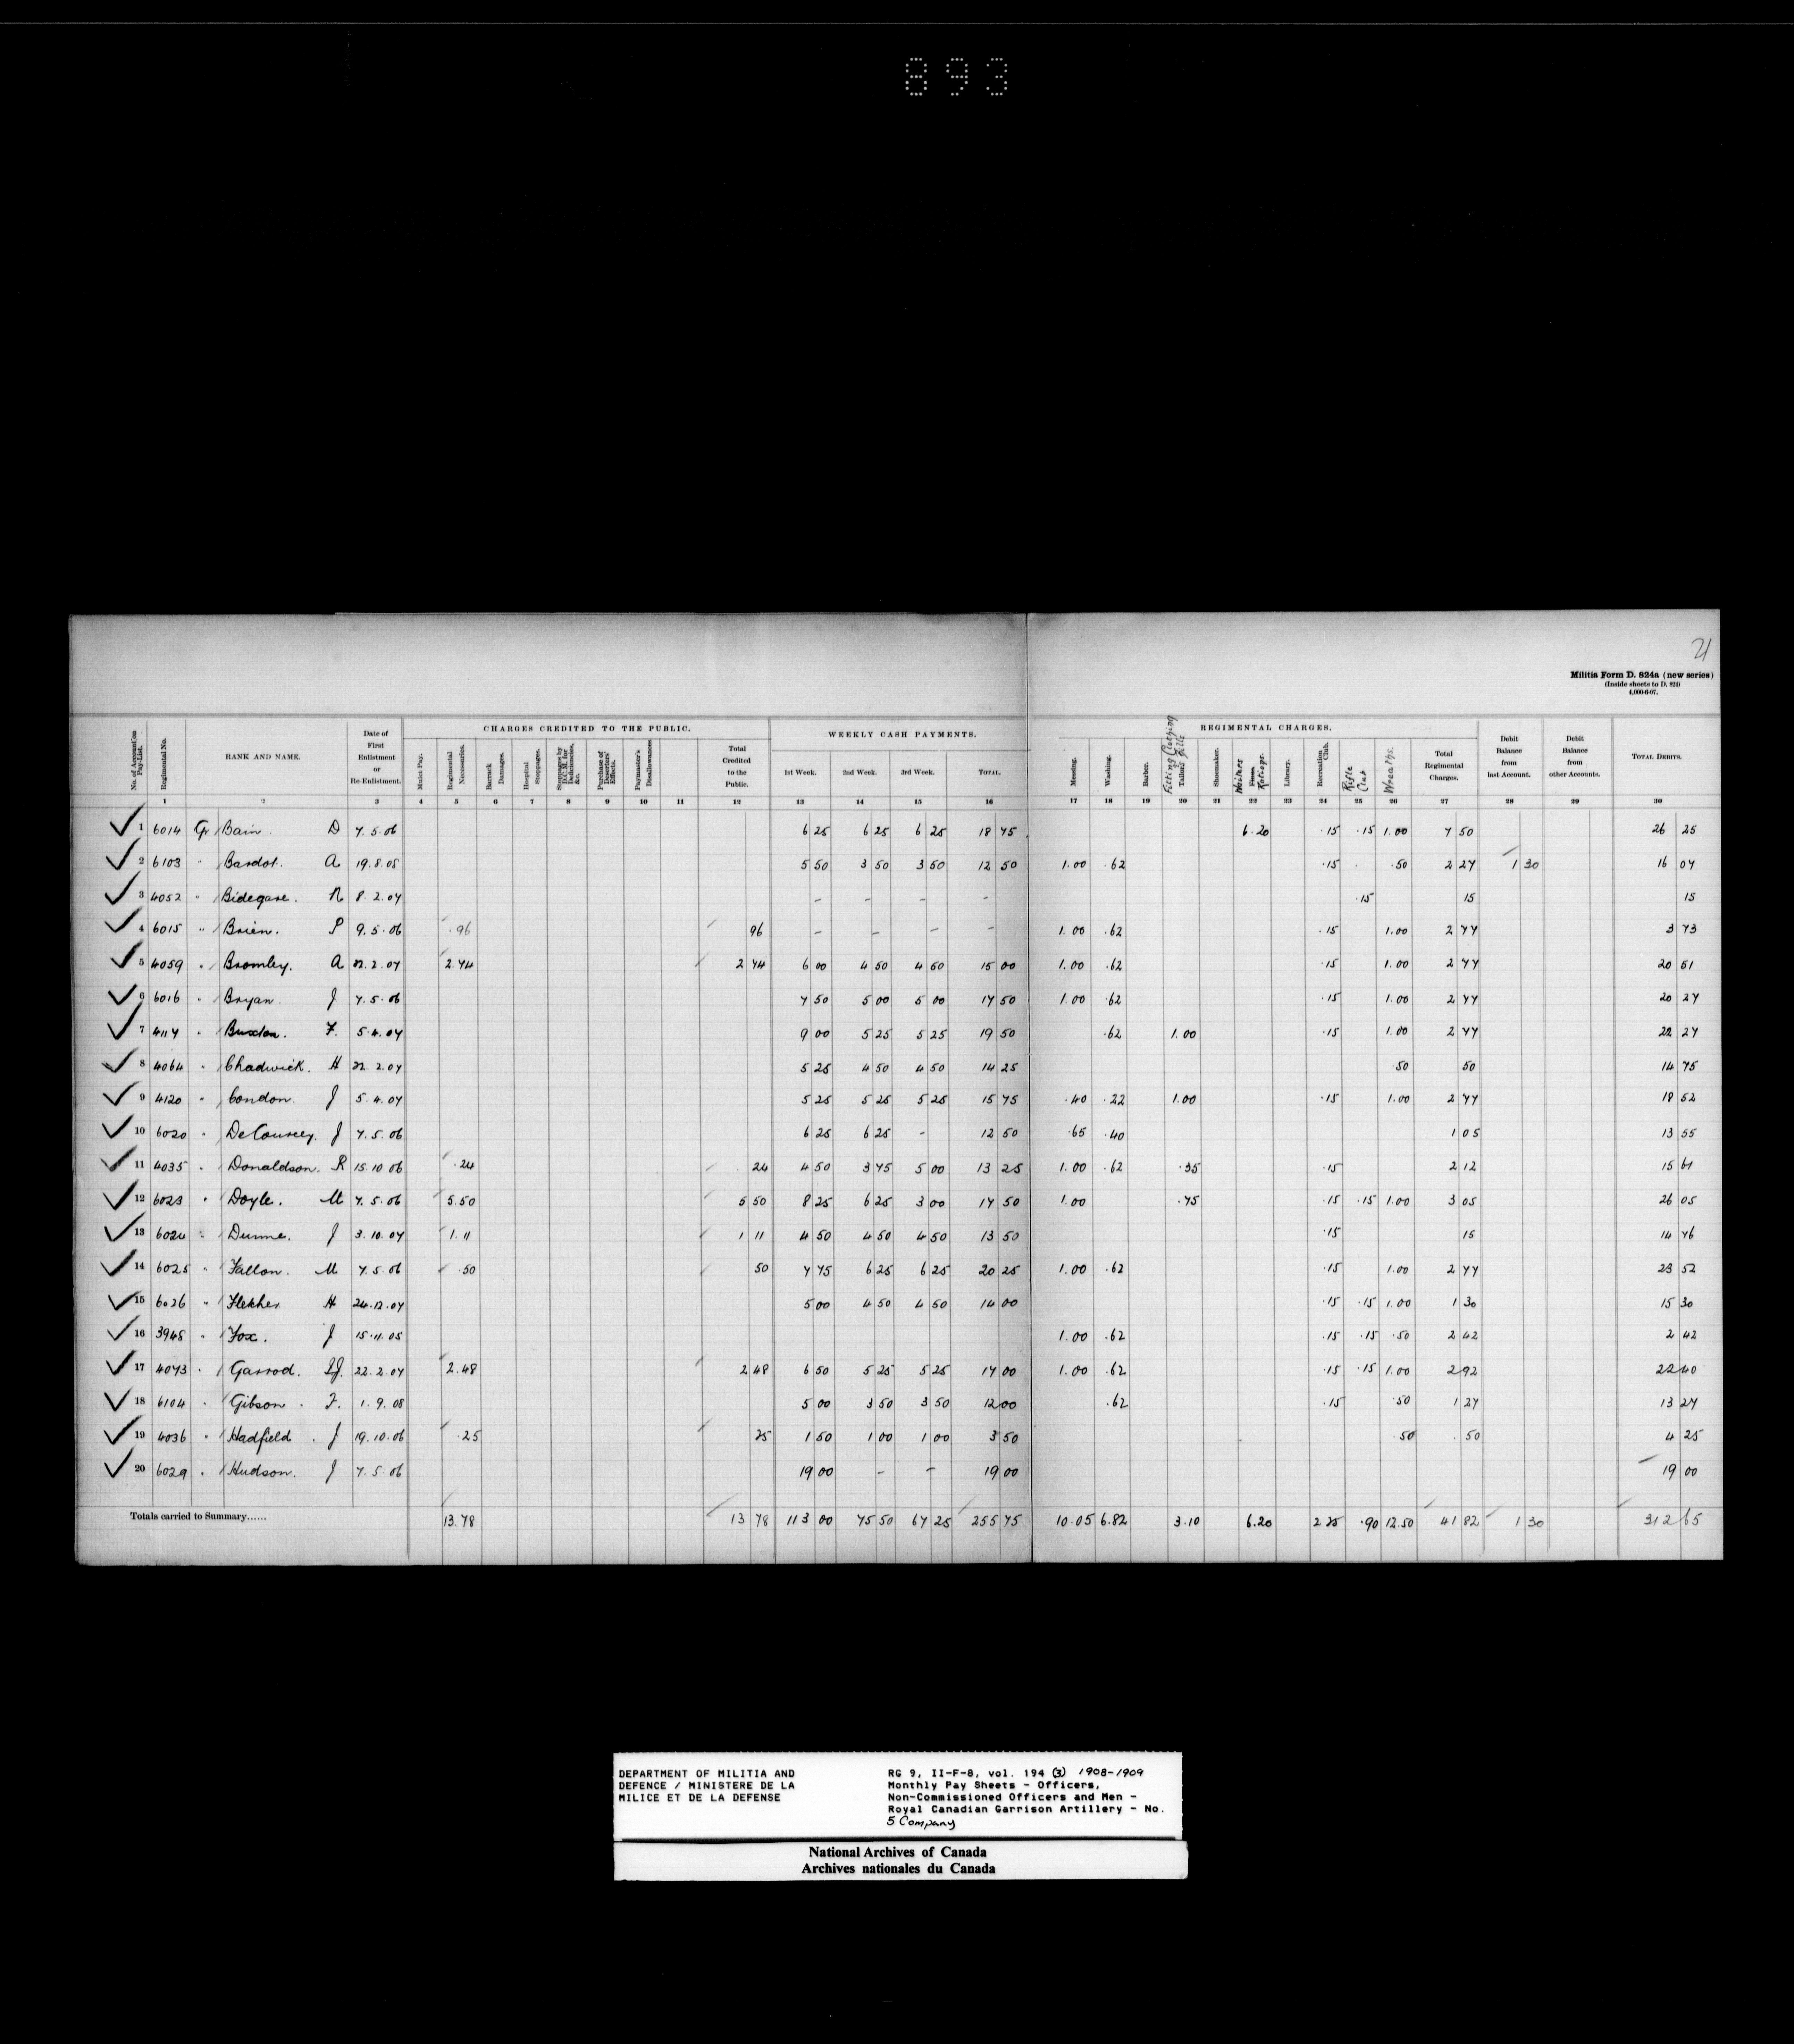 893
21
Militia Form D. 824a (new series)
(Inside sheets to D. 824)
4,000-6-07.
CHARGES CREDITED TO THE PUBLIC. WEEKLY CASH PAYMENTS. REGIMENTAL CHARGES.
No. of Account on Pay-List. Regimental No. RANK AND NAME. Date of First Enlistment or Re-Enlistment. Mulct Pay. Regimental Necessaries. Barrack Damages. Hospital Stoppages. Stoppages by D.C.M. for Deficiencies, &c. Purchase of Deserters' Effects. Paymaster's Disallowances Total Credited to the Public. 1st Week. 2nd Week. 3rd Week. TOTAL. Messing. Washing. Barber. Fitting Clothing & Tailors Bills Shoemaker. Library. Recreation Club. Rifle Club Total Regimental Charges. Debit Balance from last Account. Debit Balance from other Accounts. TOTAL DEBITS.
1 2 3 4 5 6 7 8 9 10 11 12 13 14 15 16 17 18 19 20 21 22 23 24 25 26 27 28 29 30
1 6014 Gr Bain D 7.5.06 6 25 6 25 6 25 18 75 6.20 .15 .15 1.00 7 50 26 25
2 6103 " Bardot. A 19.8.08 5 50 3 50 3 50 12 50 1.00 .62 .15 .50 2 27 1 30 16 07
3 4052 " Bidegare. N 8.2.07 - - - - .15 15 15
4 6015 " Brien. P 9.5.06 .96 96 - - - - 1.00 .62 .15 1.00 2 77 3 73
5 4059 " Bromley. A 22.2.07 2.74 2 74 6 00 4 50 4 50 15 00 1.00 .62 .15 1.00 2 77 20 51
6 6016 " Bryan J 7.5.06 7 50 5 00 5 00 17 50 1.00 .62 .15 1.00 2 77 20 27
7 4117 " Buxton. F. 5.4.07 9 00 5 25 5 25 19 50 .62 1.00 .15 1.00 2 77 22 27
8 4064 " Chadwick. H 22.2.07 5 25 4 50 4 50 14 25 .50 50 14 75
9 4120 " Condon J 5.4.07 5 25 5 25 5 25 15 75 .40 .22 1.00 .15 1.00 2 77 18 52
10 6020 " DeCourcey. J 7.5.06 6 25 6 25 - 12 50 .65 .40 1 05 13 55
11 4035 " Donaldson. R 15.10.06 .24 24 4 50 3 75 5 00 13 25 1.00 .62 .35 .15 2 12 15 61
12 6023 " Doyle. M 7.5.06 5.50 5 50 8 25 6 25 3 00 17 50 1.00 .75 .15 .15 1.00 3 05 26 05
13 6024 " Dunne. J 3.10.07 1.11 1 11 4 50 4 50 4 50 13 50 .15 15 14 76
14 6025 " Fallon. M 7.5.06 .50 50 7 75 6 25 6 25 20 25 1.00 .62 .15 1.00 2 77 23 52
15 6026 " Fletcher H 24.12.07 5 00 4 50 4 50 14 00 .15 .15 1.00 1 30 15 30
16 3948 " Fox. J 15.11.05 1.00 .62 .15 .15 .50 2 42 2 42
17 4073 " Garrod. 22.2.07 2.48 2 48 6 50 5 25 5 25 17 00 1.00 .62 .15 .15 1.00 2 92 22 40
18 6104 " Gibson. F. 1.9.08 5 00 3 50 3 50 12 00 .62 .15 .50 1 27 13 27
19 4036 " Hadfield. J 19.10.06 .25 25 1 50 1 00 1 00 3 50 .50 .50 4 25
20 6029 " Hudson. J 7.5.06 19 00 - - 19 00 19 00
Totals carried to Summary...... 13.78 13 78 113 00 75 50 67 25 255 75 10.05 6.82 3.10 6.20 2 25 .90 12.50 41 82 1 30 312 65
DEPARTMENT OF MILITIA AND
DEFENCE / MINISTERE DE LA
MILICE ET DE LA DEFENSE
RG 9, II-F-8, vol. 194 (3) 1908-1909
Monthly Pay Sheets - Officers,
Non-Commissioned Officers and Men -
Royal Canadian Garrison Artillery - No.
5 Company
National Archives of Canada
Archives nationales du Canada